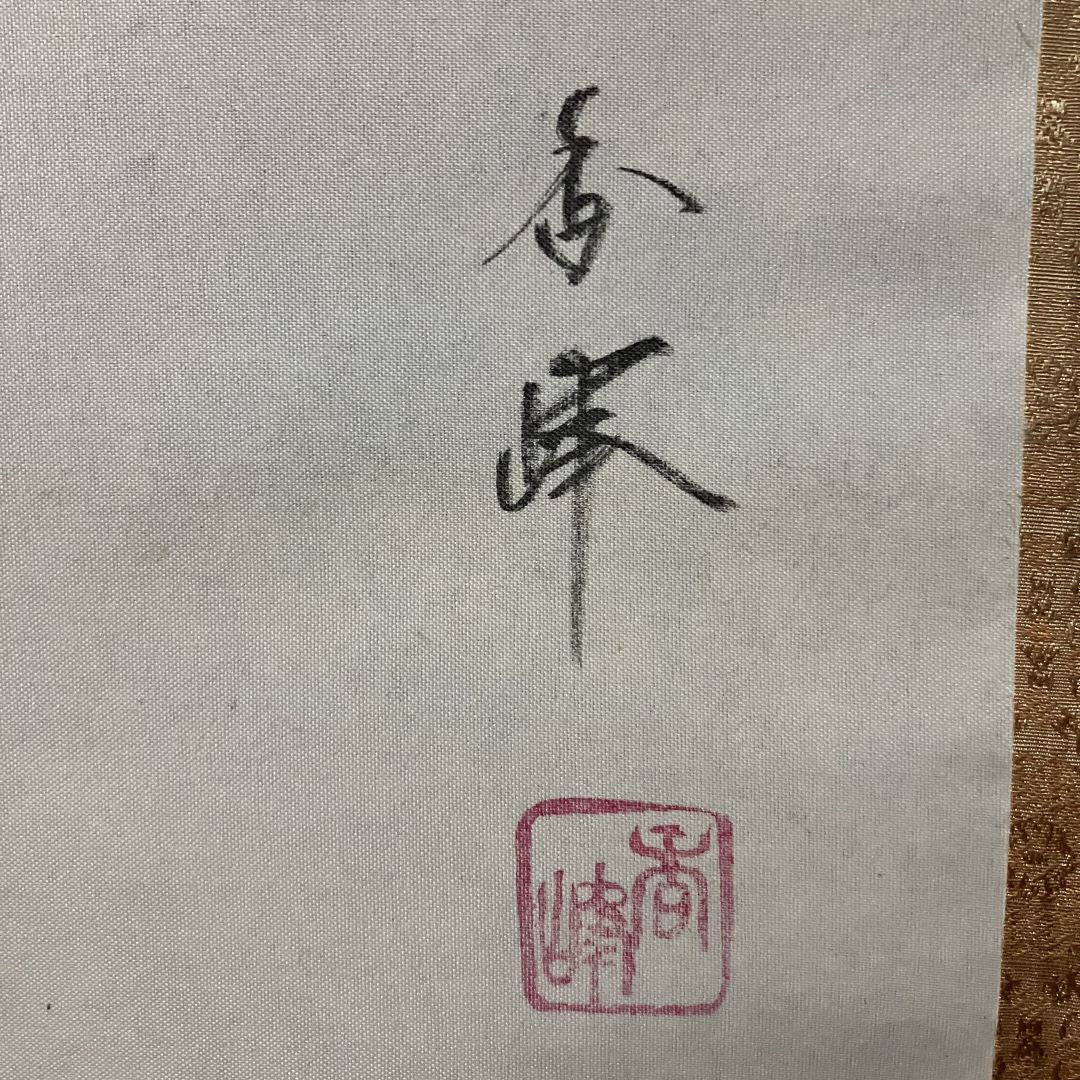 香峰
香峰